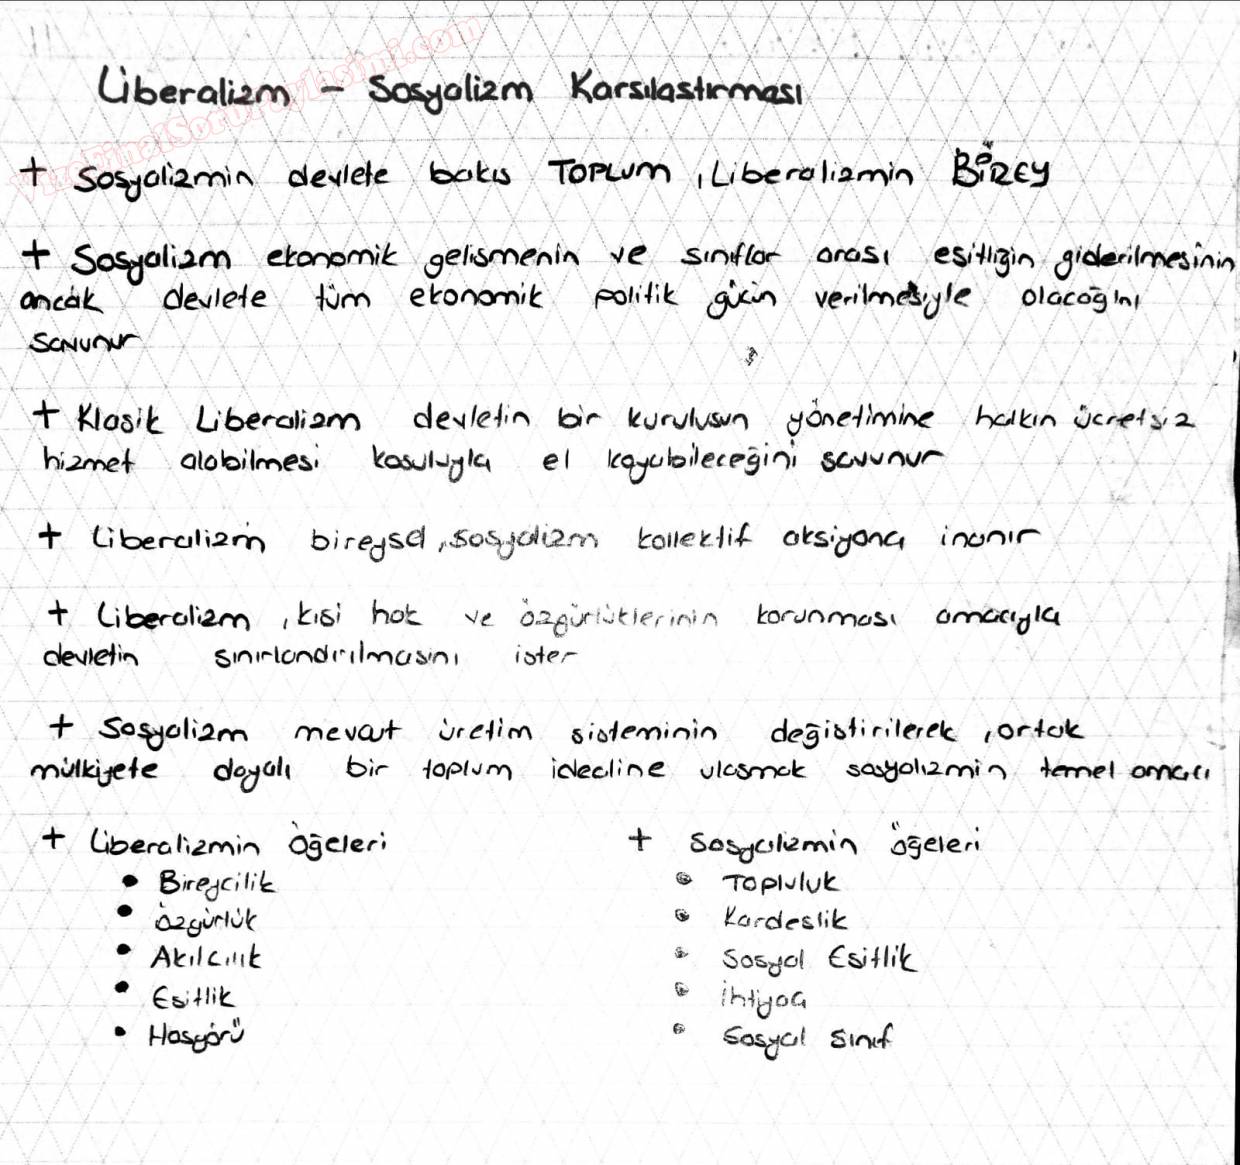 VizeFinalSoruPaylasimi.com
Liberalizm - Sosyalizm Karsılastırması
+ Sosyalizmin devlete bakıs TOPLUM, Liberalizmin BİREY
+ Sosyalizm ekonomik gelismenin ve sınıflar arası esitliğin giderilmesinin
ancak devlete tüm ekonomik politik gücün verilmesiyle olacağını
savunur
+ Klasik Liberalizm devletin bir kurulusun yönetimine halkın ücretsiz
hizmet alabilmesi kosuluyla el koyabileceğini savunur
+ Liberalizm bireysel, sosyalizm kollektif aksiyona inanır
+ Liberalizm, kisi hak ve özgürlüklerinin korunması amacıyla
devletin sınırlandırılmasını ister
+ Sosyalizm mevcut üretim sisteminin değistirilerek, ortak
mülkiyete dayalı bir toplum idealine ulasmak sosyalizmin temel amacı
+ Liberalizmin öğeleri + Sosyalizmin öğeleri
• Bireycilik • Topluluk
• Özgürlük • Kardeslik
• Akılcılık • Sosyal Esitlik
• Esitlik • İhtiyaç
• Hosgörü • Sosyal Sınıf